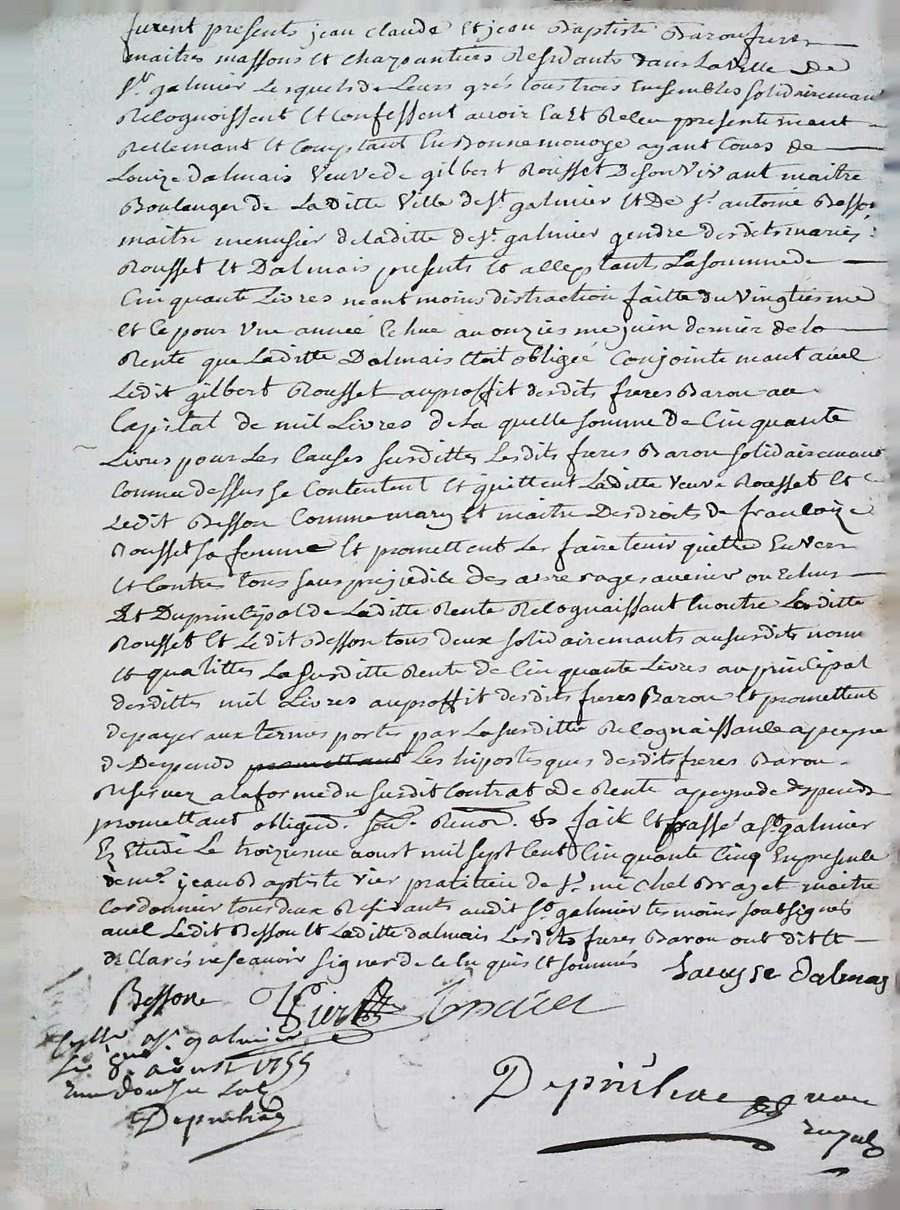 furent presents jean claude Et jean Baptiste Baron freres
maitres massons Et charpantiers Residants dans La ville De
St. galmier Lesquels de Leurs grés tous trois Ensembles solidairemant
Recognoissent Et Confessent avoir Eu Et Receu presentement
Reellemant Et Comptant En Bonne monoye ayant Cours de
Louize Dalmais Veuve de gilbert Rousset De son Vivant maitre
Boulanger de La Ditte Ville de St. galmier Et De Sr. antoine Besson
maitre menusier de laditte de St. galmier gendre desdits mariés
Rousset Et Dalmais presents Et acceptants La somme de
Cinquante Livres neant moins distraction faitte du vingtiesme
Et Ce pour Une année Echue au onziesme juin dernier de la
Rente que Laditte Dalmais Etoit obligée Conjointemant avec
Ledit gilbert Rousset au proffit desdits freres Baron au
Capital de mil Livres de La quelle somme De Cinquante
Livres pour Les Causes susdittes Lesdits freres Baron solidairemant
Comme dessus se Contentent Et quittent Laditte Veuve Rousset Et
Ledit Besson Comme mary Et maitre Des droits de francoize
Rousset sa femme Et promettent Les faire tenir quitte Envers
Et Contre tous sans prejedice des arrerages avenir ou Echus
Et Du principal de Laditte Rente Recognaissant En outre Laditte
Rousset Et Ledit Besson tous deux solidairemants au susdits noms
Et qualittes La susditte Rente de Cinquante Livres au principal
desdittes mil Livres au proffit desdits freres Baron Et promettent
de payer aux termes portés par La susditte Recognaissance a peyne
de Depends promettant Les hipotesques desdits freres Baron
Reservez a la forme du susdit Contrat de Rente a peyne de depends
promettant obligeud. sou. Renon. fait Et passé a St. galmier
Ez Etude Le troiziesme aoust mil sept Cent Cinquante Cinq En presence
de me. jean Baptiste Vier pratitien de Sr. michel Brazet maitre
Cordonnier tous deux Residants audit St. galmier temoins soubsignés
avec Ledit Besson Et Laditte dalmais Lesdits freres Baron ont dit Et
de Claré ne scavoir signer de Ce En quis Et sommés Louyse Dalmas
Bessone Vier
a St. galmier
Le aoust 1755
Recu douse sols